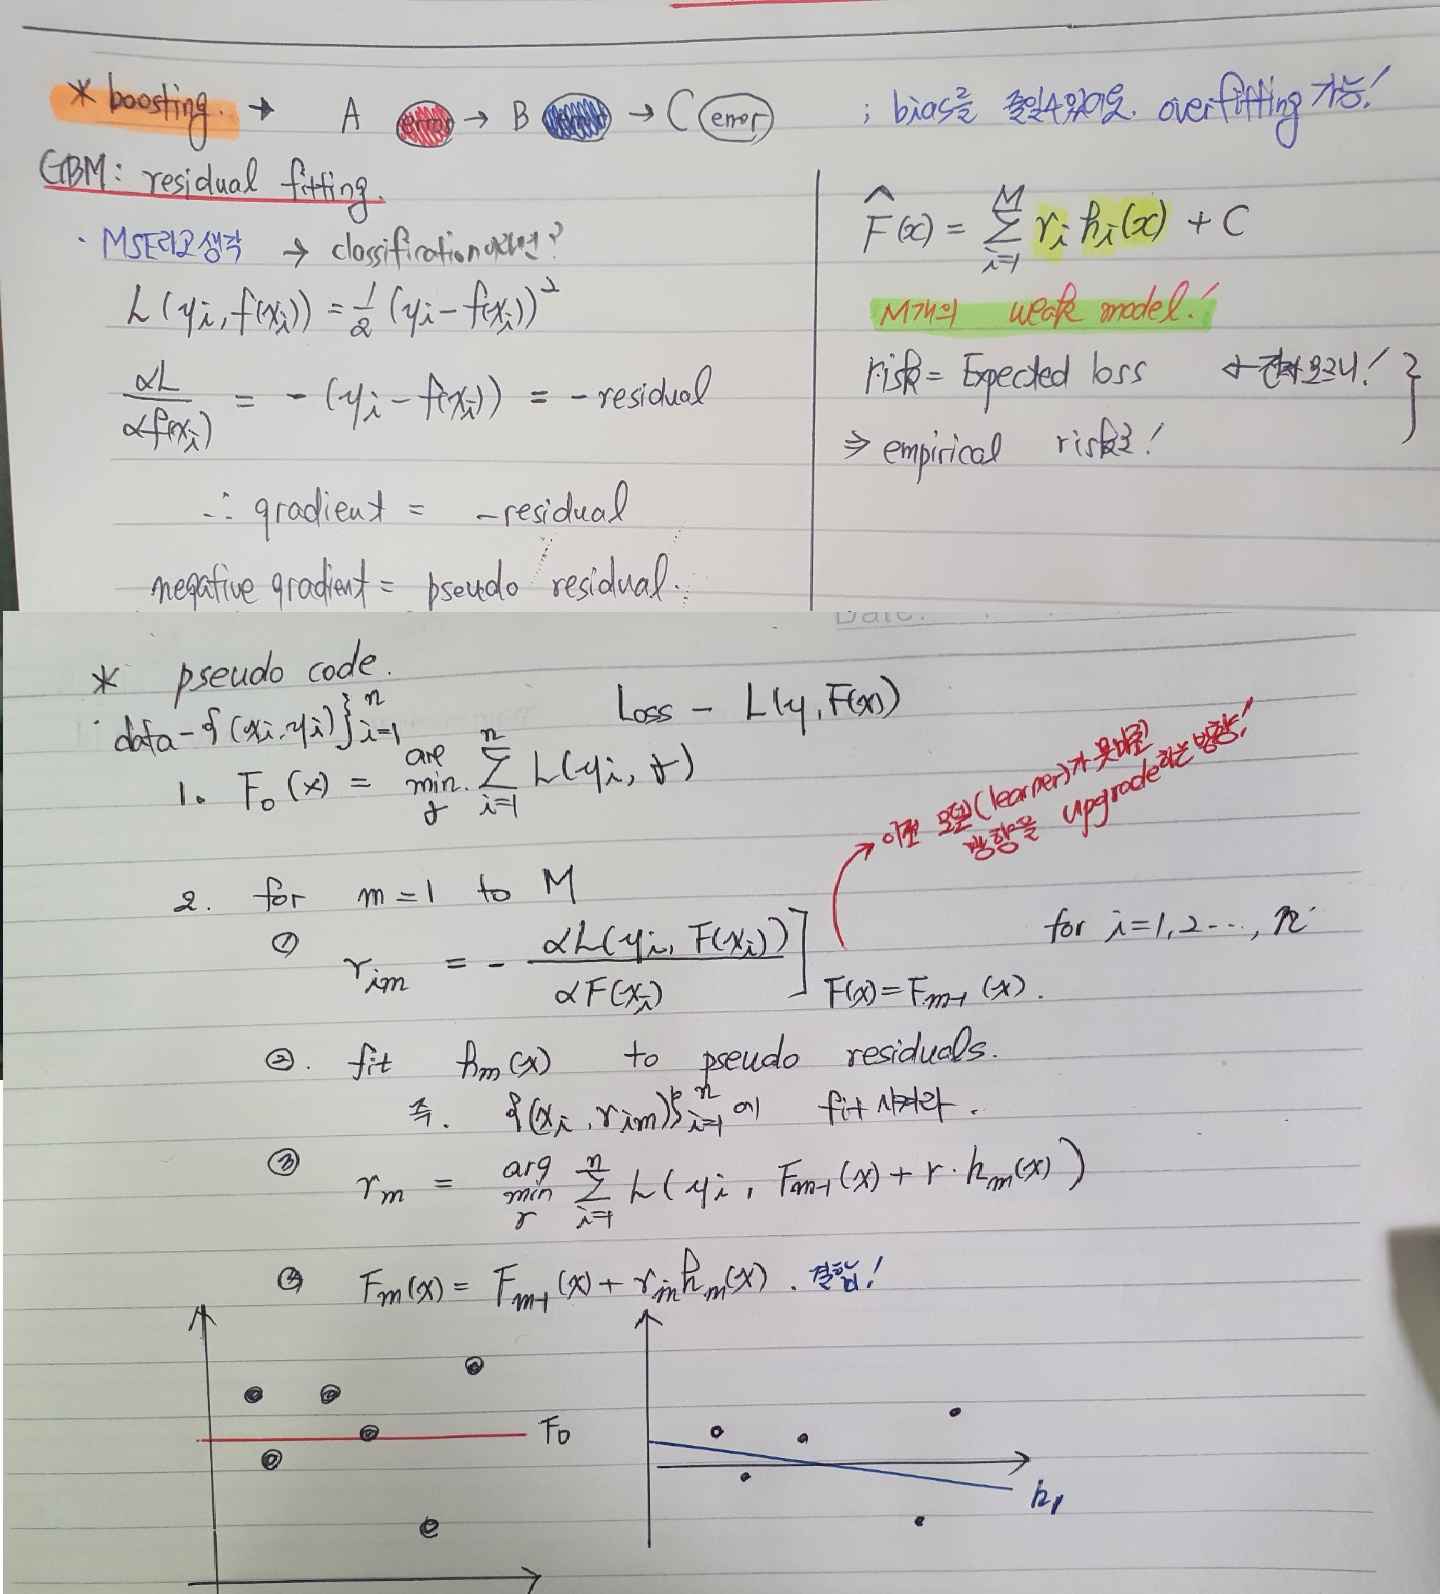 * boosting. → A error → B error → C error ; bias를 줄일수있어요. overfitting 가능!
GBM: residual fitting.
· MSE라고생각 → classification이라면?
L(yi, f(xi)) = 1/2 (yi - f(xi))²
αL/αf(xi) = - (yi - f(xi)) = - residual
∴ gradient = - residual
negative gradient = pseudo residual.
F̂(x) = Σ_{i=1}^{M} ri hi(x) + C
M개의 weak model!
risk = Expected loss 모르니! }
⇒ empirical risk로!
Date.
* pseudo code.
· data - {(xi, yi)}_{i=1}^{n} Loss - L(y, F(x))
1. F0(x) = arg min_γ Σ_{i=1}^{n} L(yi, γ)
이전 모델(learner)가 못배운
방향을 upgrade하는 방향!
2. for m=1 to M
① rim = - αL(yi, F(xi))/αF(xi) ] F(x)=Fm-1(x). for i=1,2..., n
②. fit hm(x) to pseudo residuals.
즉. {(xi, rim)}_{i=1}^{n} 에 fit 시켜라.
③ rm = arg min_r Σ_{i=1}^{n} L(yi, Fm-1(x) + r·hm(x))
④ Fm(x) = Fm-1(x) + rm hm(x). 결합!
F0
h1